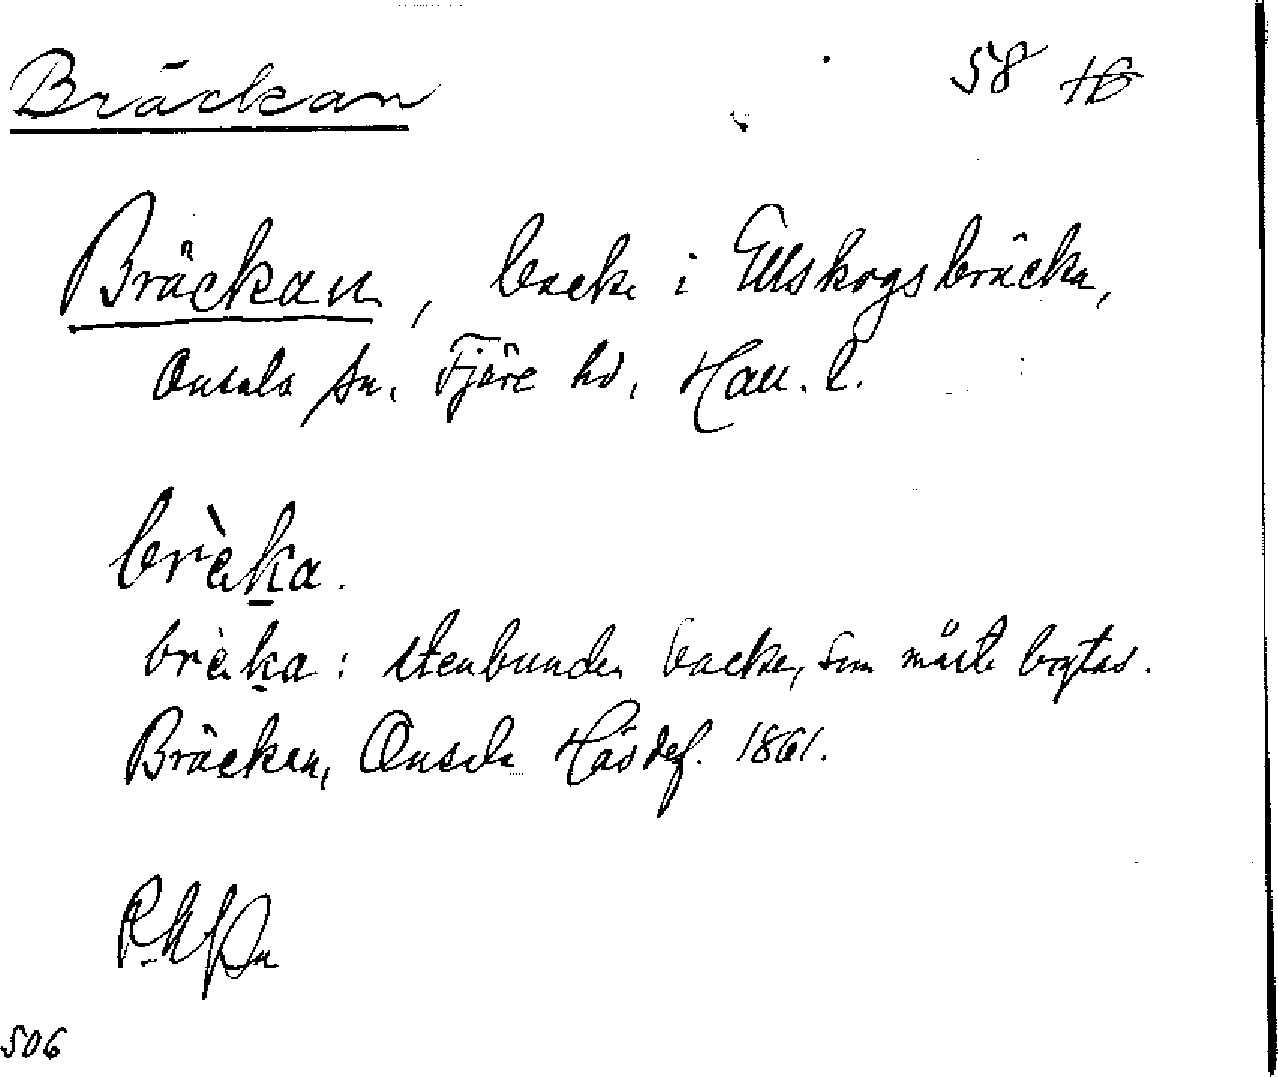 Bräckan 58
Bräckan, backe i Ellskogsbräcka,
Onsala sn. Fjäre hd, Hall. l.
bràka.
bràka: stenbunden backe, som måste brytas.
Bräckan, Onsala 1861.
506